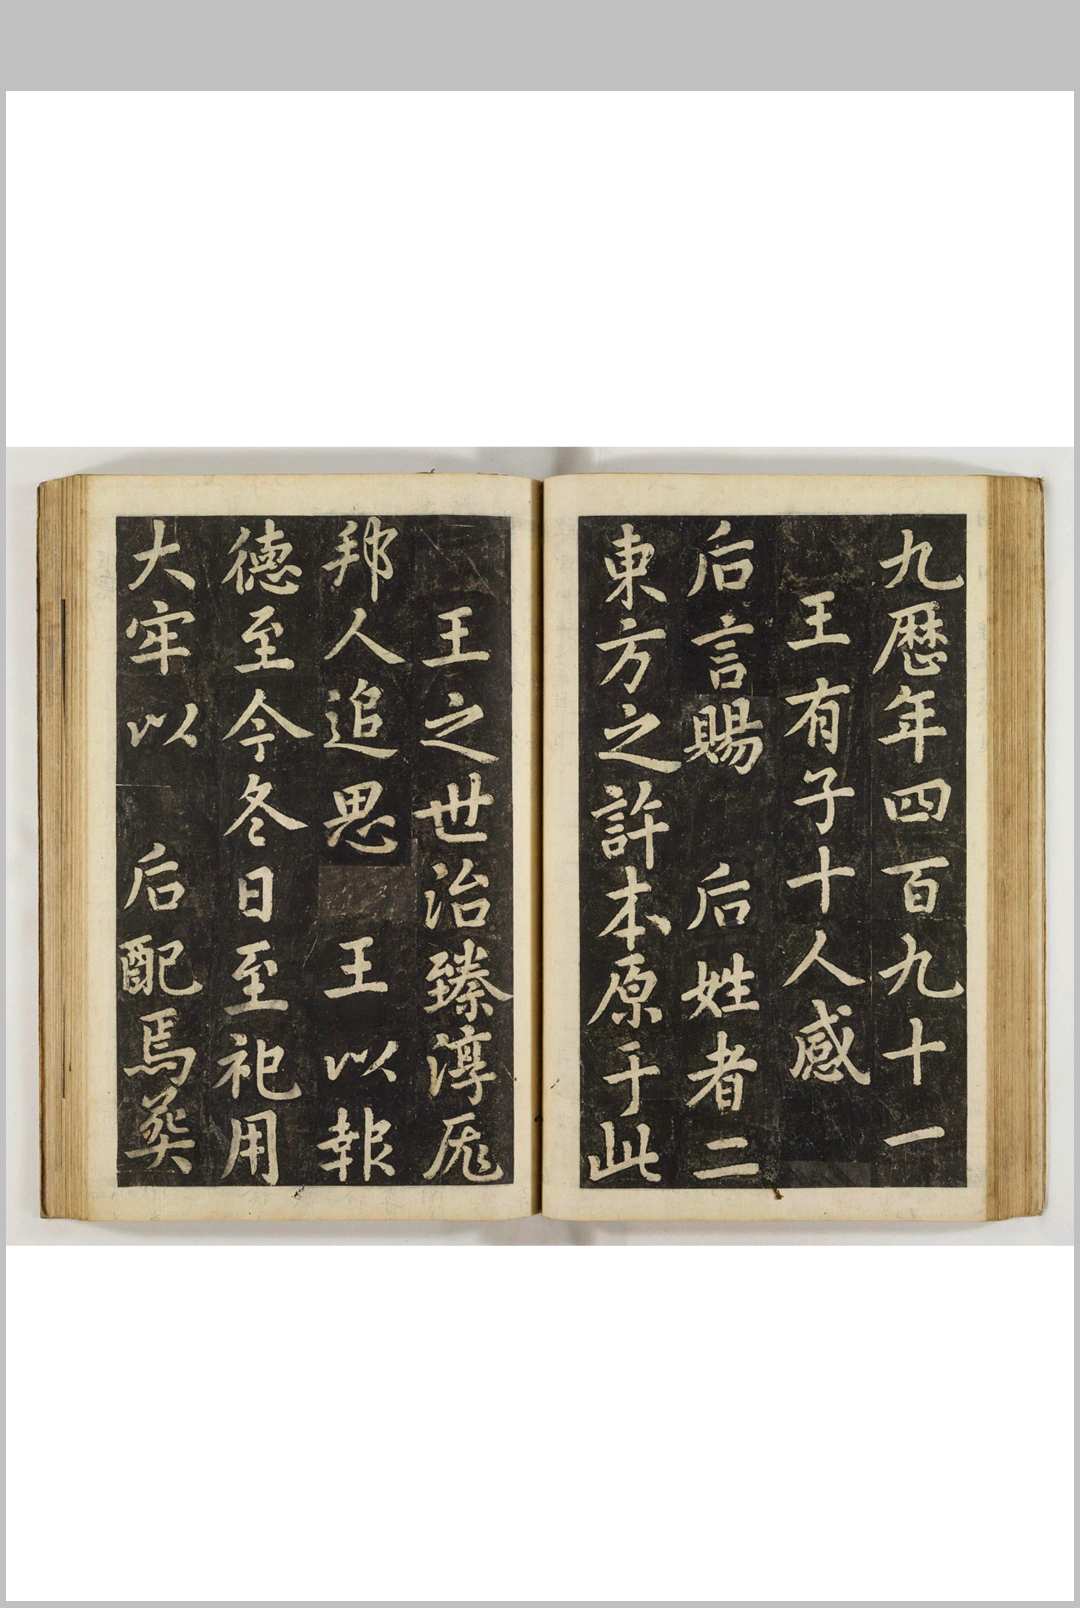 九歷年四百九十一
王有子十人感
后言賜 后姓者二
東方之許本原于此
王之世治臻淳厖
邦人追思 王以報
德至今冬日至祀用
大牢以 后配焉葬